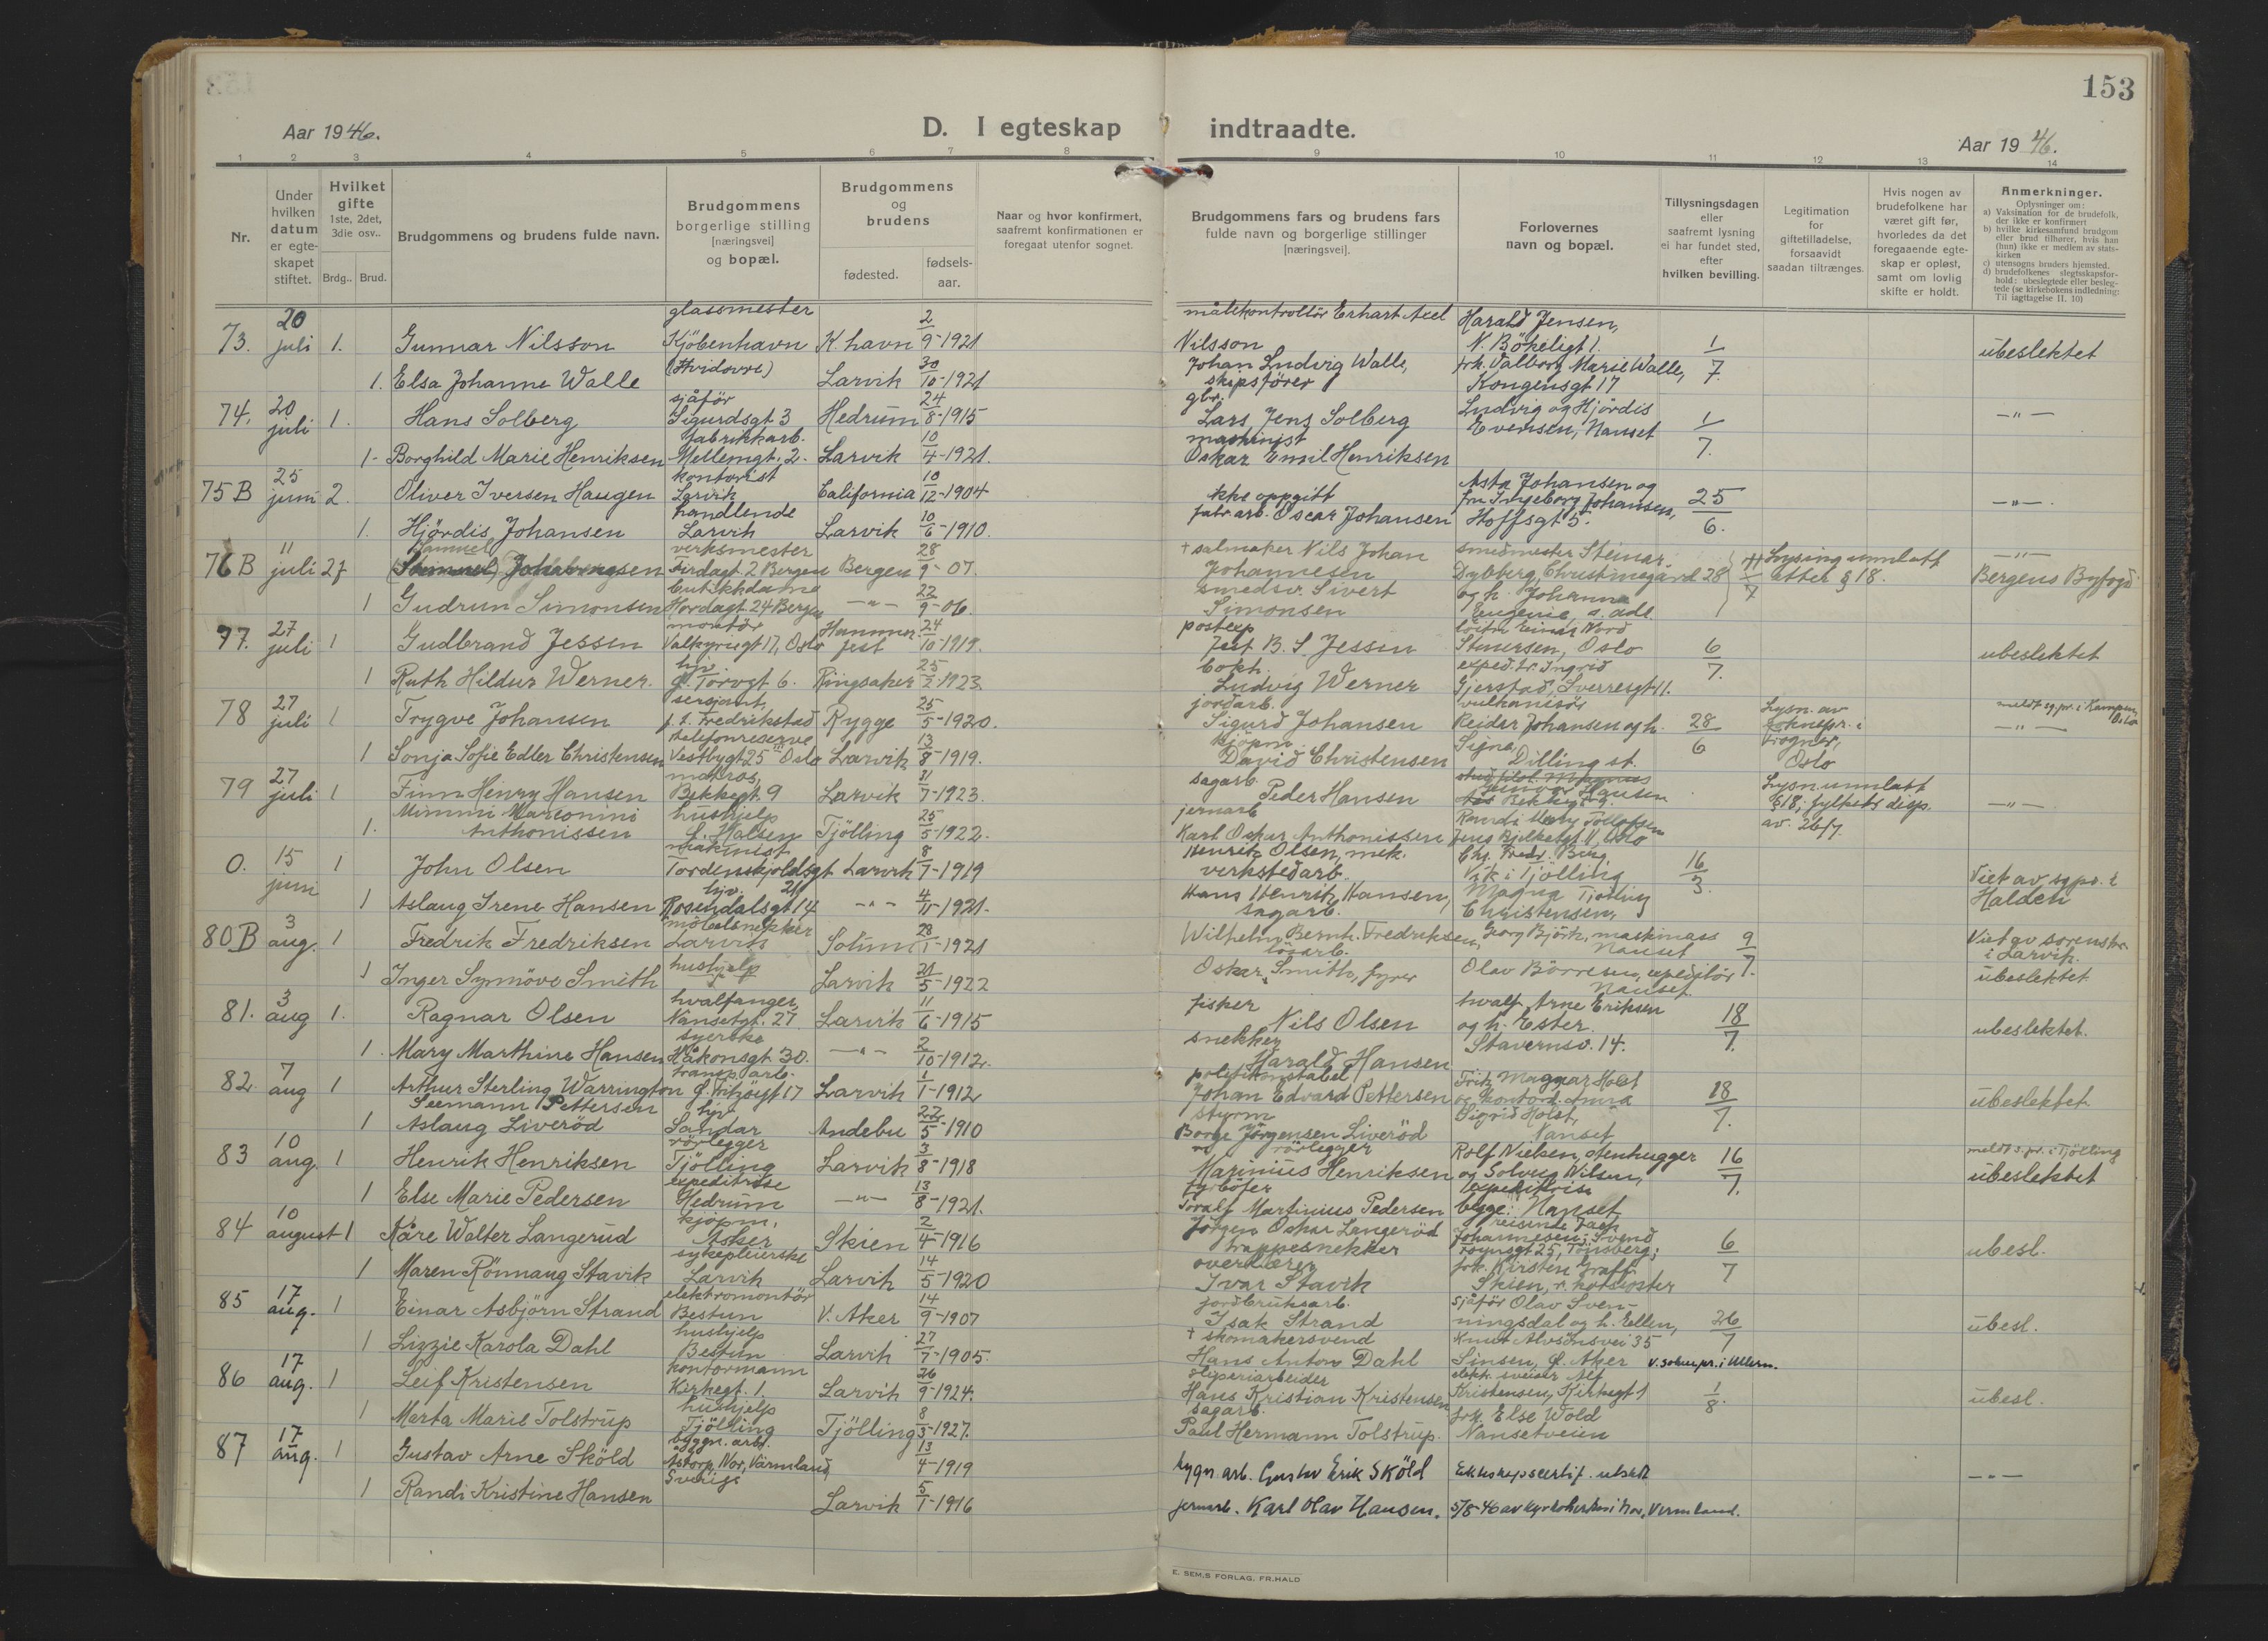 153
Aar 1946.
D. I egteskap indtraadte.
Aar 1946.
1 2 3 4 5 6 7 8 9 10 11 12 13 14
Nr.
Under hvilken datum er egte-skapet stiftet.
Hvilket gifte 1ste, 2det, 3die osv..
Brdg.. Brud.
Brudgommens og brudens fulde navn.
Brudgommens borgerlige stilling [næringsvei] og bopæl.
Brudgommens og brudens
fødested.
fødsels-aar.
Naar og hvor konfirmert, saafremt konfirmationen er foregaat utenfor sognet.
Brudgommens fars og brudens fars fulde navn og borgerlige stillinger [næringsvei].
Forlovernes navn og bopæl.
Tillysningsdagen eller saafremt lysning ei har fundet sted, efter hvilken bevilling.
Legitimation for giftetilladelse, forsaavidt saadan tiltrænges.
Hvis nogen av brudefolkene har været gift før, hvorledes da det foregaaende egte-skap er opløst, samt om lovlig skifte er holdt.
Anmerkninger.
Oplysninger om:
a) Vaksination for de brudefolk, der ikke er konfirmert
b) hvilke kirkesamfund brudgom eller brud tilhører, hvis han (hun) ikke er medlem av stats-kirken
c) utensogns bruders hjemsted.
d) brudefolkenes slegtsskapsfor-hold: ubeslegtede eller besleg-tede (se kirkebokens indledning: Til iagttagelse II. 10)
73. 20 juli 1. Gunnar Nilsson glassmester Kjöbenhavn (Hvidovre) K.havn 2/9-1921 målekontrollör Erhart Axel Nilsson Harald Jensen, N. Bökeligt 1. 1/7. ubeslektet
1. Elsa Johanne Walle Larvik 30/10-1921 Johan Ludvig Walle, skipsförer frk. Valborg Marie Walle, Kongensgt 17
74. 20 juli 1. Hans Solberg sjåför Sigurdsgt 3 Hedrum 24/8-1915 gbr. Lars Jens Solberg Ludvig og Hjördis Evensen, Nanset 1/7. -"-
1. Borghild Marie Henriksen fabrikkarb. Mellemgt. 2. Larvik 10/4-1921. maskinist Oskar Emil Henriksen
75 B 25 juni 2. Oliver Iversen Haugen kontorist Larvik California 10/12-1904 ikke oppgitt Asta Johansen og fru Ingeborg Johansen, Hoffsgt 5. 25/6. -"-
1. Hjördis Johansen handlende Larvik Larvik 10/6-1910. fabr.arb. Oscar Johansen
76 B 11 juli 2. verksmester Firdagt. 2 Bergen Bergen 28/9-07. + salmaker Nils Johan Johannesen smedmester Steinar Dybberg, Christinegård 28 /7 Lysing unnlatt etter § 18. -"- Bergens Byfogd
1 Gudrun Simonsen butikkdame Hordagt. 24 Bergen -"- 22/9-06. smedsv. Sivert Simonsen og h. Johanna Eugenie, s. adr.
77. 27 juli 1 Gudbrand Jessen montör Valkyriegt 17, Oslo Hammerfest 24/10-1919. postexp. B. S. Jessen Einar Nord Stenersen, Oslo 6/7. ubeslektet
1 Ruth Hildur Werner. hjv. Torvgt 6. Ringsaker 25/2-1923. bokh. Ludvig Werner exped. Ingrid Gjerstad, Sverresgt 11.
78 27 juli 1 Trygve Johansen sersjant, Fredrikstad Rygge 25/5-1920. jordarb. Sigurd Johansen vulkanisör Reidar Johansen og h. Signe, Dilling st. 28/6 Lysn. av soknepr. i Frogner, Oslo meldt sg.pr. i Kampen, Oslo -"-
1 Sonja Sofie Edler Christensen telefonreserve Vestbygt 25 Oslo Larvik 13/8-1919. kjöpm. David Christensen
79 27 juli 1 Finn Henry Hansen matros, Bekkegt. 9 Larvik 31/7-1923. sagarb. Peder Hansen Gunvor Hansen Bekkegt. 9. Lysn. unnlatt § 18, fylkets disp. av. 26/7. -"-
1. Mimmi Marconini Anthonissen hushjelp Halsen Tjölling 25/5-1922. jernarb. Karl Oskar Anthonissen Randi Tollefsen Jens Bjelkesgt 11, Oslo
0. 15 juni 1 John Olsen maskinist Tordenskjoldsgt 21 Larvik 8/7-1919 Henrik Olsen, mek. verkstedarb. Chr. Fredr. Berg, Vik i Tjölling 16/3. Viet av sgpr. i Halden
1 Aslaug Irene Hansen hjv. Rosendalsgt 14 -"- 4/11-1921. Hans Henrik Hansen, sagarb. Magna Tjölling Christensen,
80 B 3 aug. 1 Fredrik Fredriksen möbelsnekker Larvik Solum 28/1-1921 Wilhelm Bernh. Fredriksen, Georg Björk, maskinass Nanset 9/7. Viet av sorenskr. i Larvik. ubeslektet
1 Inger Synnöve Smith hushjelp Larvik 21/5-1922 Oskar Smith, fyrer Olav Börresen, expeditör Nanset
81. 3 aug 1. Ragnar Olsen hvalfanger, Nansetgt. 27 Larvik 11/6-1915 fisker Nils Olsen hvalf. Arne Eriksen og h. Ester. Stavernsv. 14. 18/7. ubeslektet.
1. Mary Marthine Hansen syerske Håkonsgt. 30. -"- 2/10-1912. snekker Harald Hansen
82. 7 aug 1 Arthur Sterling Warrington Seemann Pettersen transp. arb. Fritjofsgt 17 Larvik 1/1-1912 politikonstabel Johan Edvard Pettersen Fritz Magnar Holst og kontord. Anna Sigrid Holst, Nanset 18/7. ubeslektet
1 Aslaug Liveröd hjv. Sandar Andebu 22/5-1910 styrm Borge Jörgensen Liveröd
83 10 aug. 1 Henrik Henriksen rörlegger Tjölling Larvik 3/8-1918 rörlegger Marinius Henriksen Rolf Nielsen, stenhugger og Solveig Nilsen, expeditrise begge: Nanset 16/7. meldt s.pr. i Tjölling ubeslektet
1 Else Marie Pedersen expeditrise Hedrum -"- 13/8-1921. fyrböter Toralf Martinius Pedersen
84 10 august 1 Kåre Walter Langerud kjöpm. Asker Skien 2/4-1916 Jörgen Oskar Langeröd trappesnekker reisende Johannesen; Svend Foynsgt 25, Tönsberg; 6/7 ubesl.
1 Maren Rönnaug Stavik sykepleierske Larvik Larvik 14/5-1920 overlærer Ivar Stavik frk. Kirsten Graff Skien,
85 17 aug. 1 Einar Asbjörn Strand elektromontör Bestun V. Aker 14/9-1907 jordbruksarb. Isak Strand sjåför Olav Svenningsdal og h. Ellen, Knut Alvsönsvei 35 Sinsen, Ö. Aker 26/7 v. soknepr. i Ullern. ubesl.
1 Lizzie Karola Dahl hushjelp Bestun Larvik 27/7-1905. + skomakersvend Hans Anton Dahl
86 17 aug. 1 Leif Kristensen kontormann Kirkegt. 1. Larvik 26/9-1924. sliperiarbeider Hans Kristian Kristensen elektr. sveiser Alf Kristensen, Kirkegt 1 1/8. ubesl.
1 Marta Marie Tolstrup hushjelp Tjölling Tjölling 8/3-1927. sagarb. Paul Hermann Tolstrup. frk. Else Wold Nansetveien
87 17 aug. 1 Gustav Arne Sköld byggn. arb. Åstorp, Nor, Värmland Sverige 13/4-1919 bygn. arb. Gustav Erik Sköld Ekteskapscertif. utstedt -"-
1 Randi Kristine Hansen Larvik 5/1-1916 jernarb. Karl Olav Hansen. 5/8-46 av kyrkoherden i Nor, Vermland.
E. SEM,S FORLAG, FR.HALD